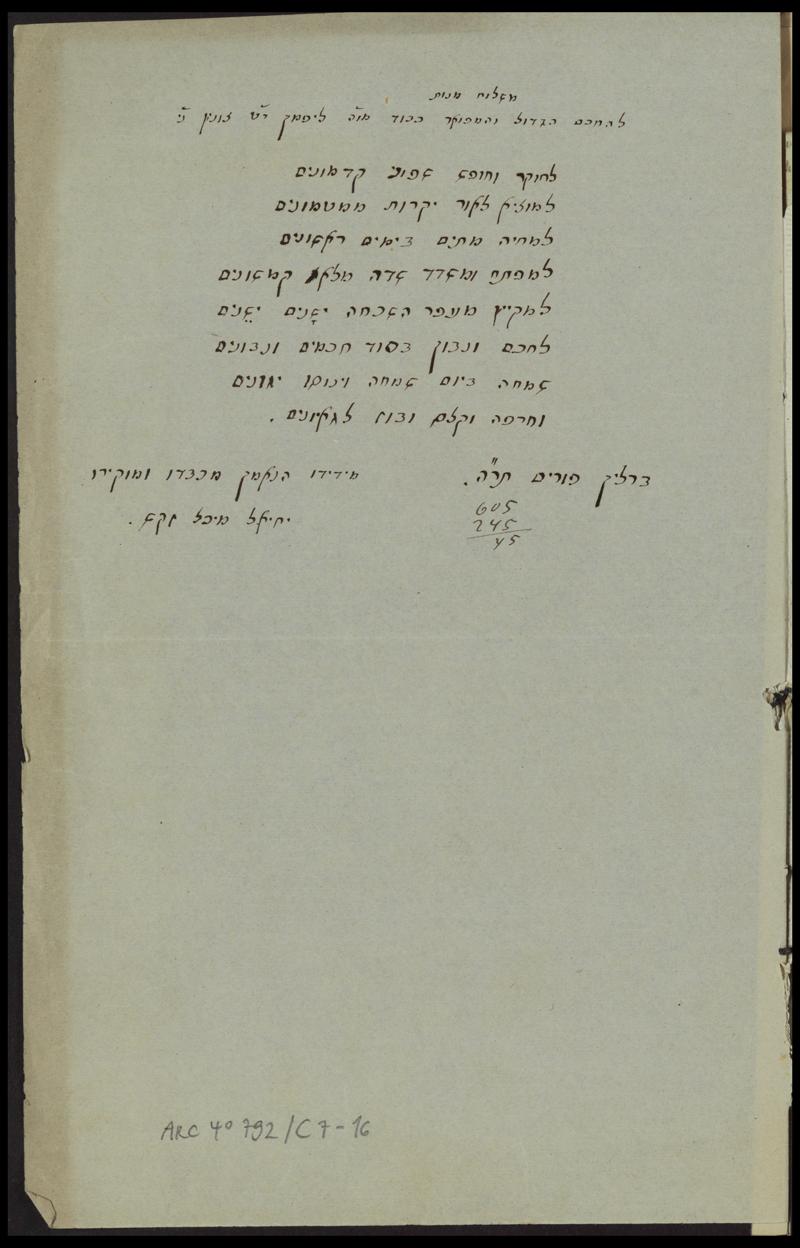 משלוח מנות
להחכם הגדול והמפואר כבוד מו״ה ליפמן צונץ נ״י
לחוקר וחופש שפוני קדמונים
למוציא לאור יקרות ממטמונים
למחיה מתים בימים ראשונים
למפתח ומשדד שדה מלאה קמשונים
למקיץ מעפר השכחה ישנים יְשֵׁנִים
לחכם ונבון בסוד חכמים ונבונים
שמחה ביום שמחה וינוסו יגונים
וחרפה וקלם ובוז לגאיונים.
ברלין פורים תר״ה.
מידידו הנאמן מכבדו ומוקירו
יחיאל מיכל זקש.
605
245
45
ARC 4° 792/C7-16